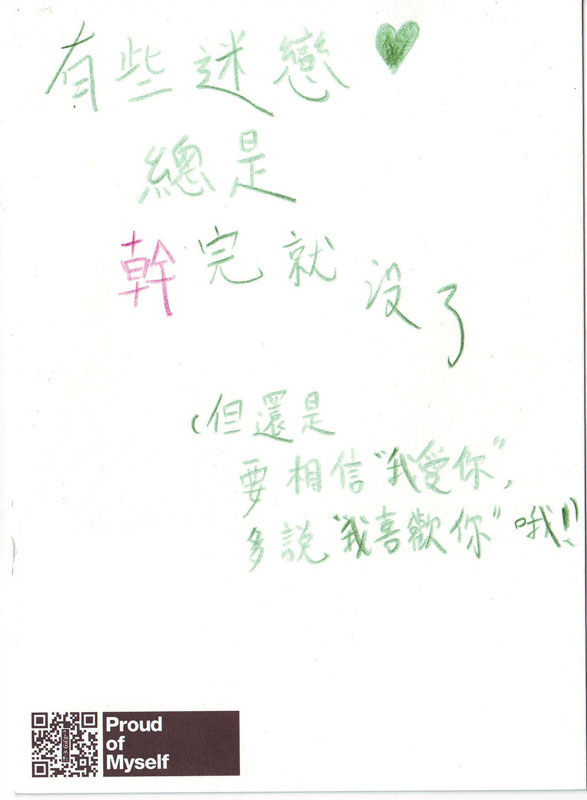 有些迷戀♥
總是
幹完就沒了
(但還是
要相信"我愛你",
多說"我喜歡你"哦!!
Proud
of
Myself